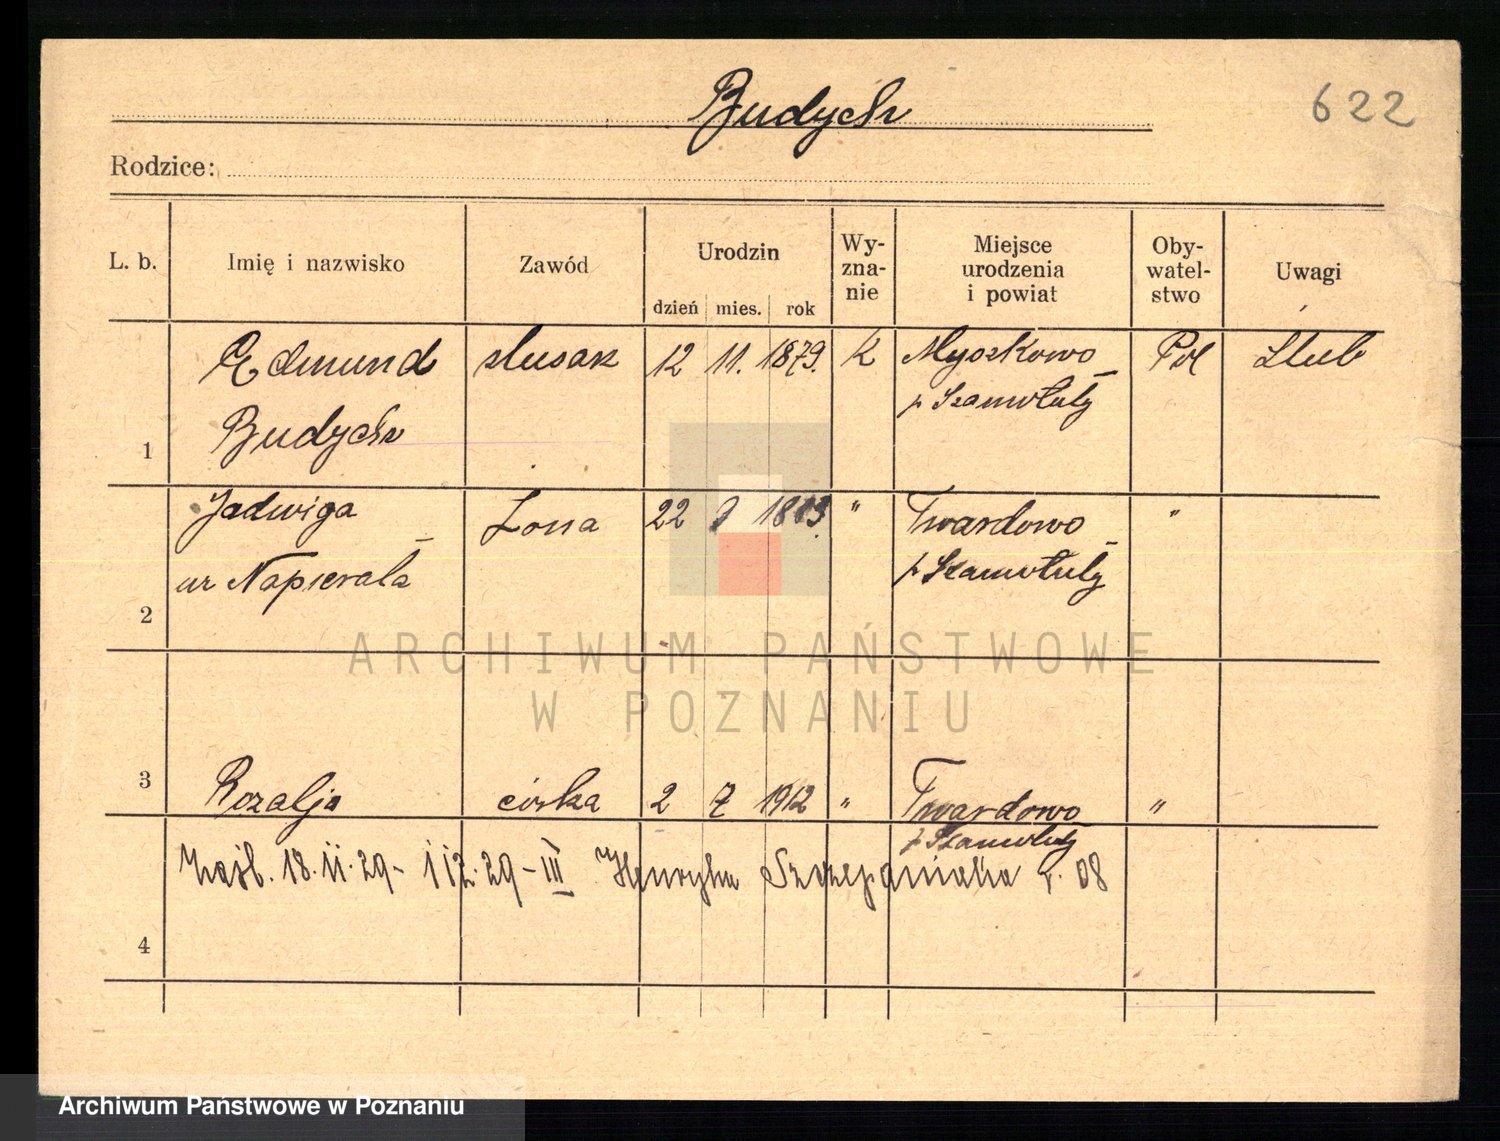 Budych
622
Rodzice:
L. b. Imię i nazwisko Zawód Urodzin dzień mies. rok Wy-zna-nie Miejsce urodzenia i powiat Oby-watel-stwo Uwagi
1 Edmund Budych ślusarz 12 11. 1879. K Myszkowo p Szamotuły Pol
2 Jadwiga ur Napierała żona 22 " Twardowo p Szamotuły "
3 Rozalja córka 2 7 1912 " Twardowo p Szamotuły "
18.11.29 - 29 - III Henryka Szczepaniaka r. 08
4
ARCHIWUM PAŃSTWOWE
W POZNANIU
Archiwum Państwowe w Poznaniu